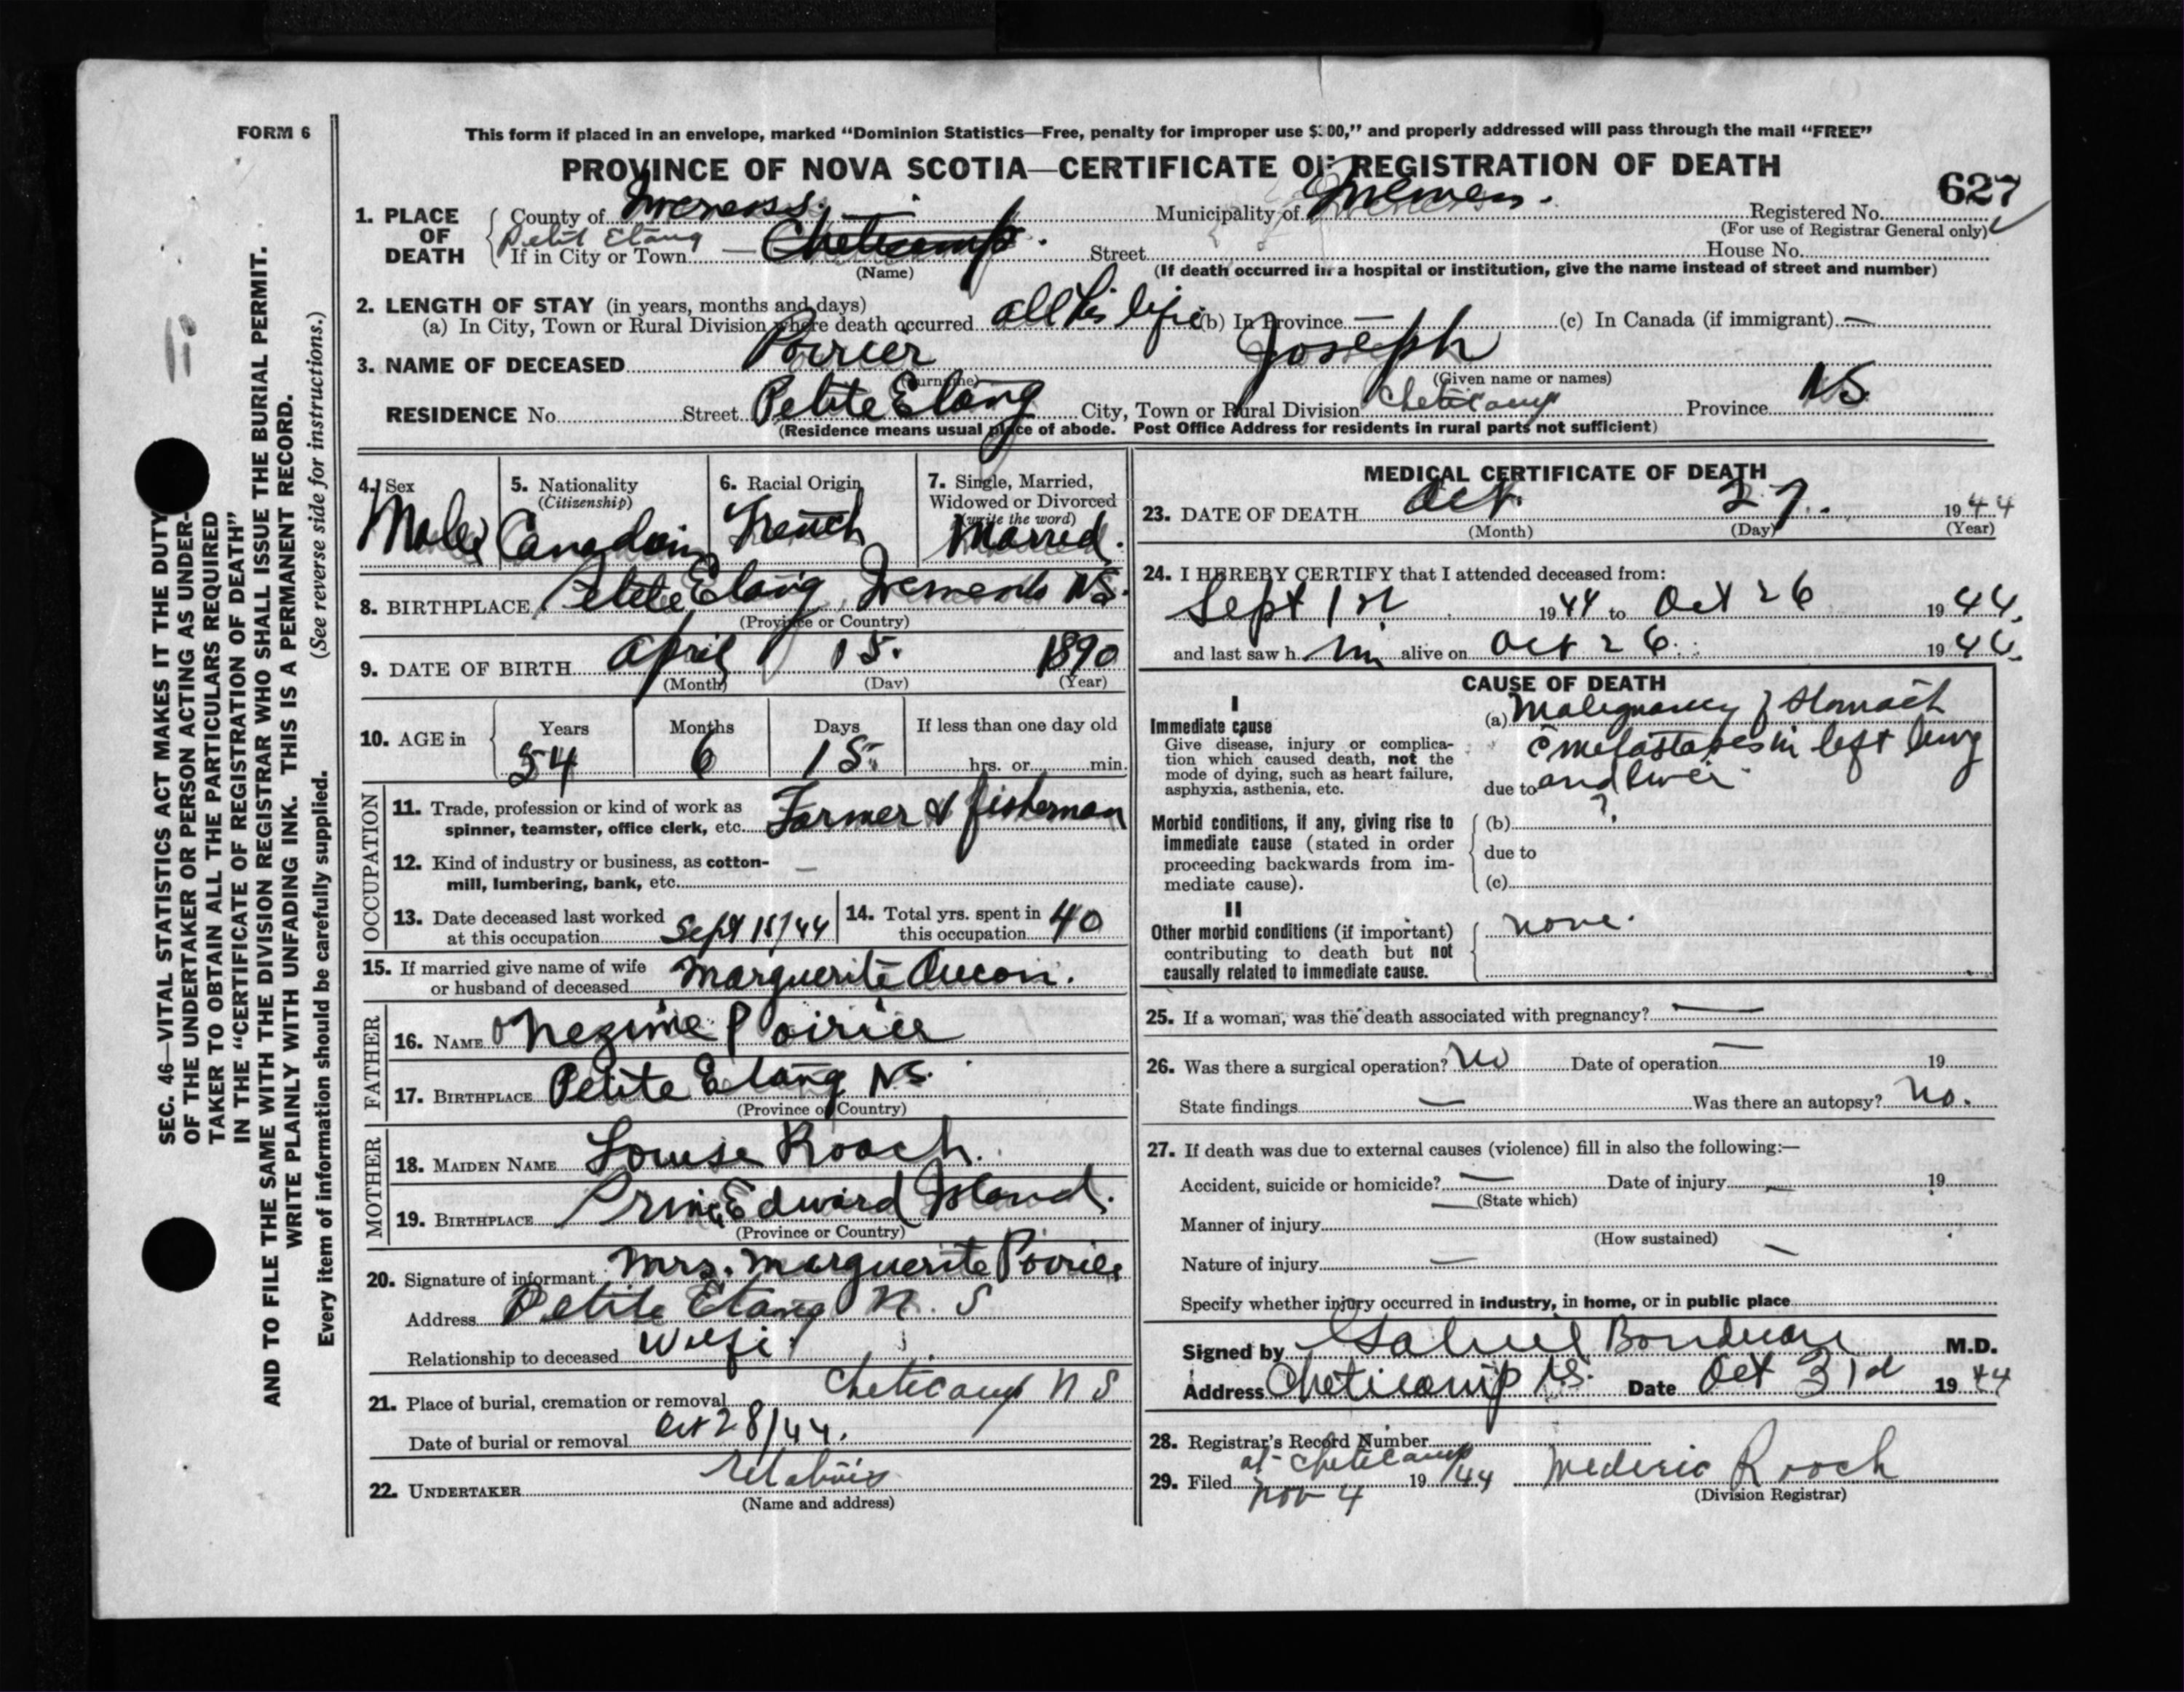 FORM 6
This form if placed in an envelope, marked “Dominion Statistics—Free, penalty for improper use $300,” and properly addressed will pass through the mail “FREE”
PROVINCE OF NOVA SCOTIA—CERTIFICATE OF REGISTRATION OF DEATH
627
1. PLACE OF DEATH
County of Inverness. Municipality of Registered No.
(For use of Registrar General only)
Petit Etang
If in City or Town Cheticamp. Street House No.
(Name) (If death occurred in a hospital or institution, give the name instead of street and number)
2. LENGTH OF STAY (in years, months and days)
(a) In City, Town or Rural Division where death occurred all his life (b) In Province — (c) In Canada (if immigrant) —
3. NAME OF DECEASED Poirier Joseph
(Surname) (Given name or names)
RESIDENCE No. Street Petite Etang City, Town or Rural Division Cheticamp Province NS.
(Residence means usual place of abode. Post Office Address for residents in rural parts not sufficient)
4. Sex
Male
5. Nationality
(Citizenship)
Canadian
6. Racial Origin
French
7. Single, Married,
Widowed or Divorced
(write the word)
Marred.
8. BIRTHPLACE Petite Etang, NS.
(Province or Country)
9. DATE OF BIRTH April 15. 1890
(Month) (Day) (Year)
10. AGE in
Years Months Days If less than one day old
54 6 15. hrs. or min.
OCCUPATION
11. Trade, profession or kind of work as
spinner, teamster, office clerk, etc. Farmer & fisherman
12. Kind of industry or business, as cotton-
mill, lumbering, bank, etc. —
13. Date deceased last worked
at this occupation Sept 15/44
14. Total yrs. spent in
this occupation 40
15. If married give name of wife
or husband of deceased Marguerite Aucoin.
FATHER
16. NAME Poirier
17. BIRTHPLACE Petite Etang NS.
(Province or Country)
MOTHER
18. MAIDEN NAME Louise Roach.
19. BIRTHPLACE Edward Island.
(Province or Country)
20. Signature of informant Mrs. Marguerite Poirier
Address Petite Etang N. S
Relationship to deceased
21. Place of burial, cremation or removal Cheticamp N S
Date of burial or removal Oct 28/44.
22. UNDERTAKER
(Name and address)
MEDICAL CERTIFICATE OF DEATH
23. DATE OF DEATH Oct. 27. 1944
(Month) (Day) (Year)
24. I HEREBY CERTIFY that I attended deceased from:
Sept 1st 1944 to Oct 26 1944.
and last saw h im alive on Oct 26. 1944.
CAUSE OF DEATH
I
Immediate cause
Give disease, injury or complica-
tion which caused death, not the
mode of dying, such as heart failure,
asphyxia, asthenia, etc.
(a) Malignancy of stomach
c̄ metastases in left lung
due to and liver
Morbid conditions, if any, giving rise to
immediate cause (stated in order
proceeding backwards from im-
mediate cause).
(b) ?
due to
(c)
II
Other morbid conditions (if important)
contributing to death but not
causally related to immediate cause.
none.
25. If a woman, was the death associated with pregnancy? —
26. Was there a surgical operation? No Date of operation — 19
State findings — Was there an autopsy? No.
27. If death was due to external causes (violence) fill in also the following:—
Accident, suicide or homicide? — Date of injury — 19
(State which)
Manner of injury —
(How sustained)
Nature of injury —
Specify whether injury occurred in industry, in home, or in public place
Signed by Gabriel Boudreau M.D.
Address Cheticamp N.S. Date Oct 31d 1944
28. Registrar's Record Number
at Cheticamp
29. Filed Nov 4 19/44 Mederic Roach
(Division Registrar)
SEC. 46—VITAL STATISTICS ACT MAKES IT THE DUTY
OF THE UNDERTAKER OR PERSON ACTING AS UNDER-
TAKER TO OBTAIN ALL THE PARTICULARS REQUIRED
IN THE “CERTIFICATE OF REGISTRATION OF DEATH”
AND TO FILE THE SAME WITH THE DIVISION REGISTRAR WHO SHALL ISSUE THE BURIAL PERMIT.
WRITE PLAINLY WITH UNFADING INK. THIS IS A PERMANENT RECORD.
Every item of information should be carefully supplied. (See reverse side for instructions.)